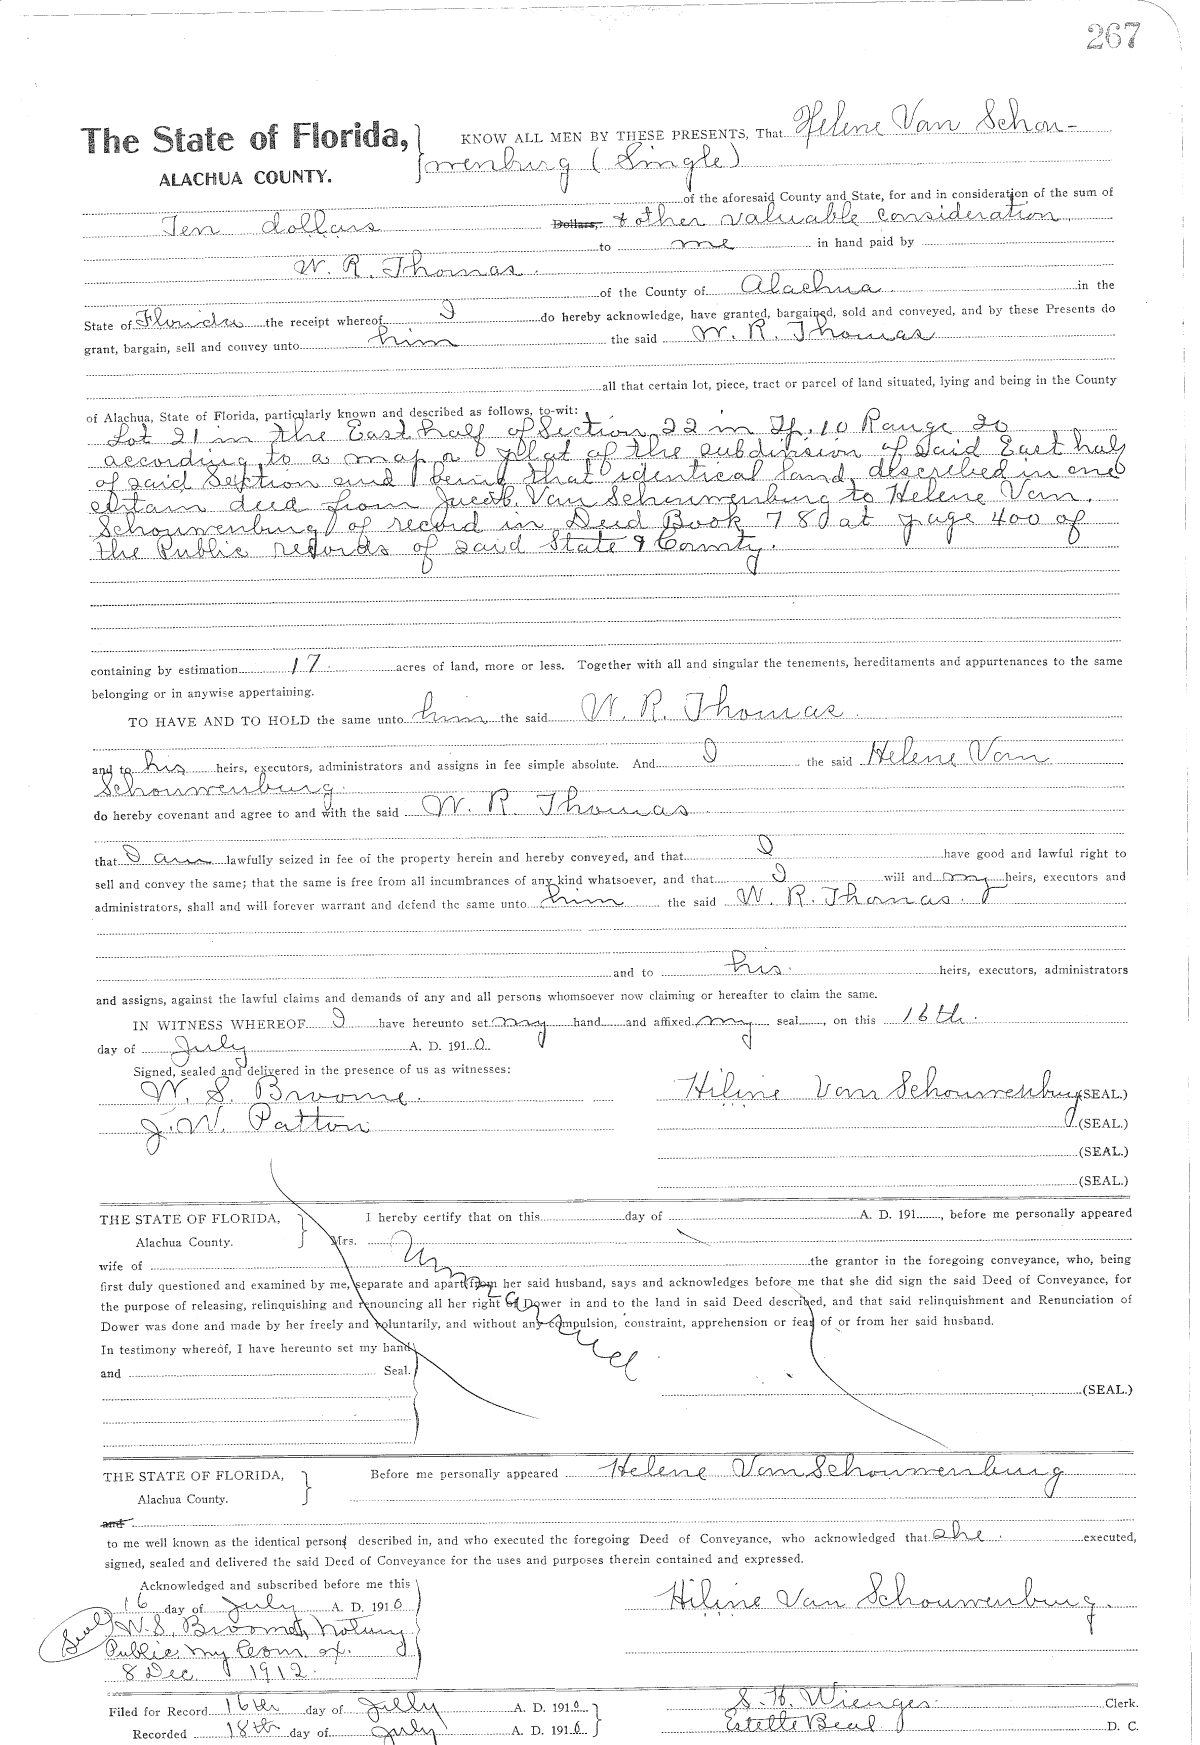 267
The State of Florida, KNOW ALL MEN BY THESE PRESENTS, That Helene Van Schou-
ALACHUA COUNTY. wenburg (Single)
of the aforesaid County and State, for and in consideration of the sum of
Ten dollars Dollars, & other valuable consideration
to me in hand paid by
W. R. Thomas
of the County of Alachua in the
State of Florida the receipt whereof I do hereby acknowledge, have granted, bargained, sold and conveyed, and by these Presents do
grant, bargain, sell and convey unto him the said W. R. Thomas
all that certain lot, piece, tract or parcel of land situated, lying and being in the County
of Alachua, State of Florida, particularly known and described as follows, to-wit:
Lot 21 in the East half of Section 22 in Tp. 10 Range 20
according to a map or plat of the subdivision of said East half
of said Section and being that identical land described in one
certain deed from Jacob Van Schouwenburg to Helene Van
Schouwenburg of record in Deed Book 78 at page 400 of
the Public records of said State & County.
containing by estimation 17 acres of land, more or less. Together with all and singular the tenements, hereditaments and appurtenances to the same
belonging or in anywise appertaining.
TO HAVE AND TO HOLD the same unto him the said W. R. Thomas
and to his heirs, executors, administrators and assigns in fee simple absolute. And I the said Helene Van
Schouwenburg
do hereby covenant and agree to and with the said W. R. Thomas
that I am lawfully seized in fee of the property herein and hereby conveyed, and that I have good and lawful right to
sell and convey the same; that the same is free from all incumbrances of any kind whatsoever, and that I will and my heirs, executors and
administrators, shall and will forever warrant and defend the same unto him the said W. R. Thomas.
and to his heirs, executors, administrators
and assigns, against the lawful claims and demands of any and all persons whomsoever now claiming or hereafter to claim the same.
IN WITNESS WHEREOF I have hereunto set my hand and affixed my seal, on this 16th
day of July A. D. 1910
Signed, sealed and delivered in the presence of us as witnesses:
W. S. Broome. Hiline Van Schouwenburg (SEAL.)
J. W. Patton (SEAL.)
(SEAL.)
(SEAL.)
THE STATE OF FLORIDA, I hereby certify that on this day of A. D. 191 , before me personally appeared
Alachua County. Mrs.
wife of the grantor in the foregoing conveyance, who, being
first duly questioned and examined by me, separate and apart from her said husband, says and acknowledges before me that she did sign the said Deed of Conveyance, for
the purpose of releasing, relinquishing and renouncing all her right of Dower in and to the land in said Deed described, and that said relinquishment and Renunciation of
Dower was done and made by her freely and voluntarily, and without any compulsion, constraint, apprehension or fear of or from her said husband.
In testimony whereof, I have hereunto set my hand
and Seal.
(SEAL.)
THE STATE OF FLORIDA, Before me personally appeared Helene Van Schouwenburg
Alachua County.
and
to me well known as the identical persons described in, and who executed the foregoing Deed of Conveyance, who acknowledged that she executed,
signed, sealed and delivered the said Deed of Conveyance for the uses and purposes therein contained and expressed.
Acknowledged and subscribed before me this
16 day of July A. D. 1910 Hiline Van Schouwenburg.
Seal W. S. Broome, Notary
Public my Com. ex.
8 Dec 1912.
Filed for Record 16th day of July A. D. 1910 S. H. Wienges Clerk.
Recorded 18th day of July A. D. 1910 Estelle Beal D. C.